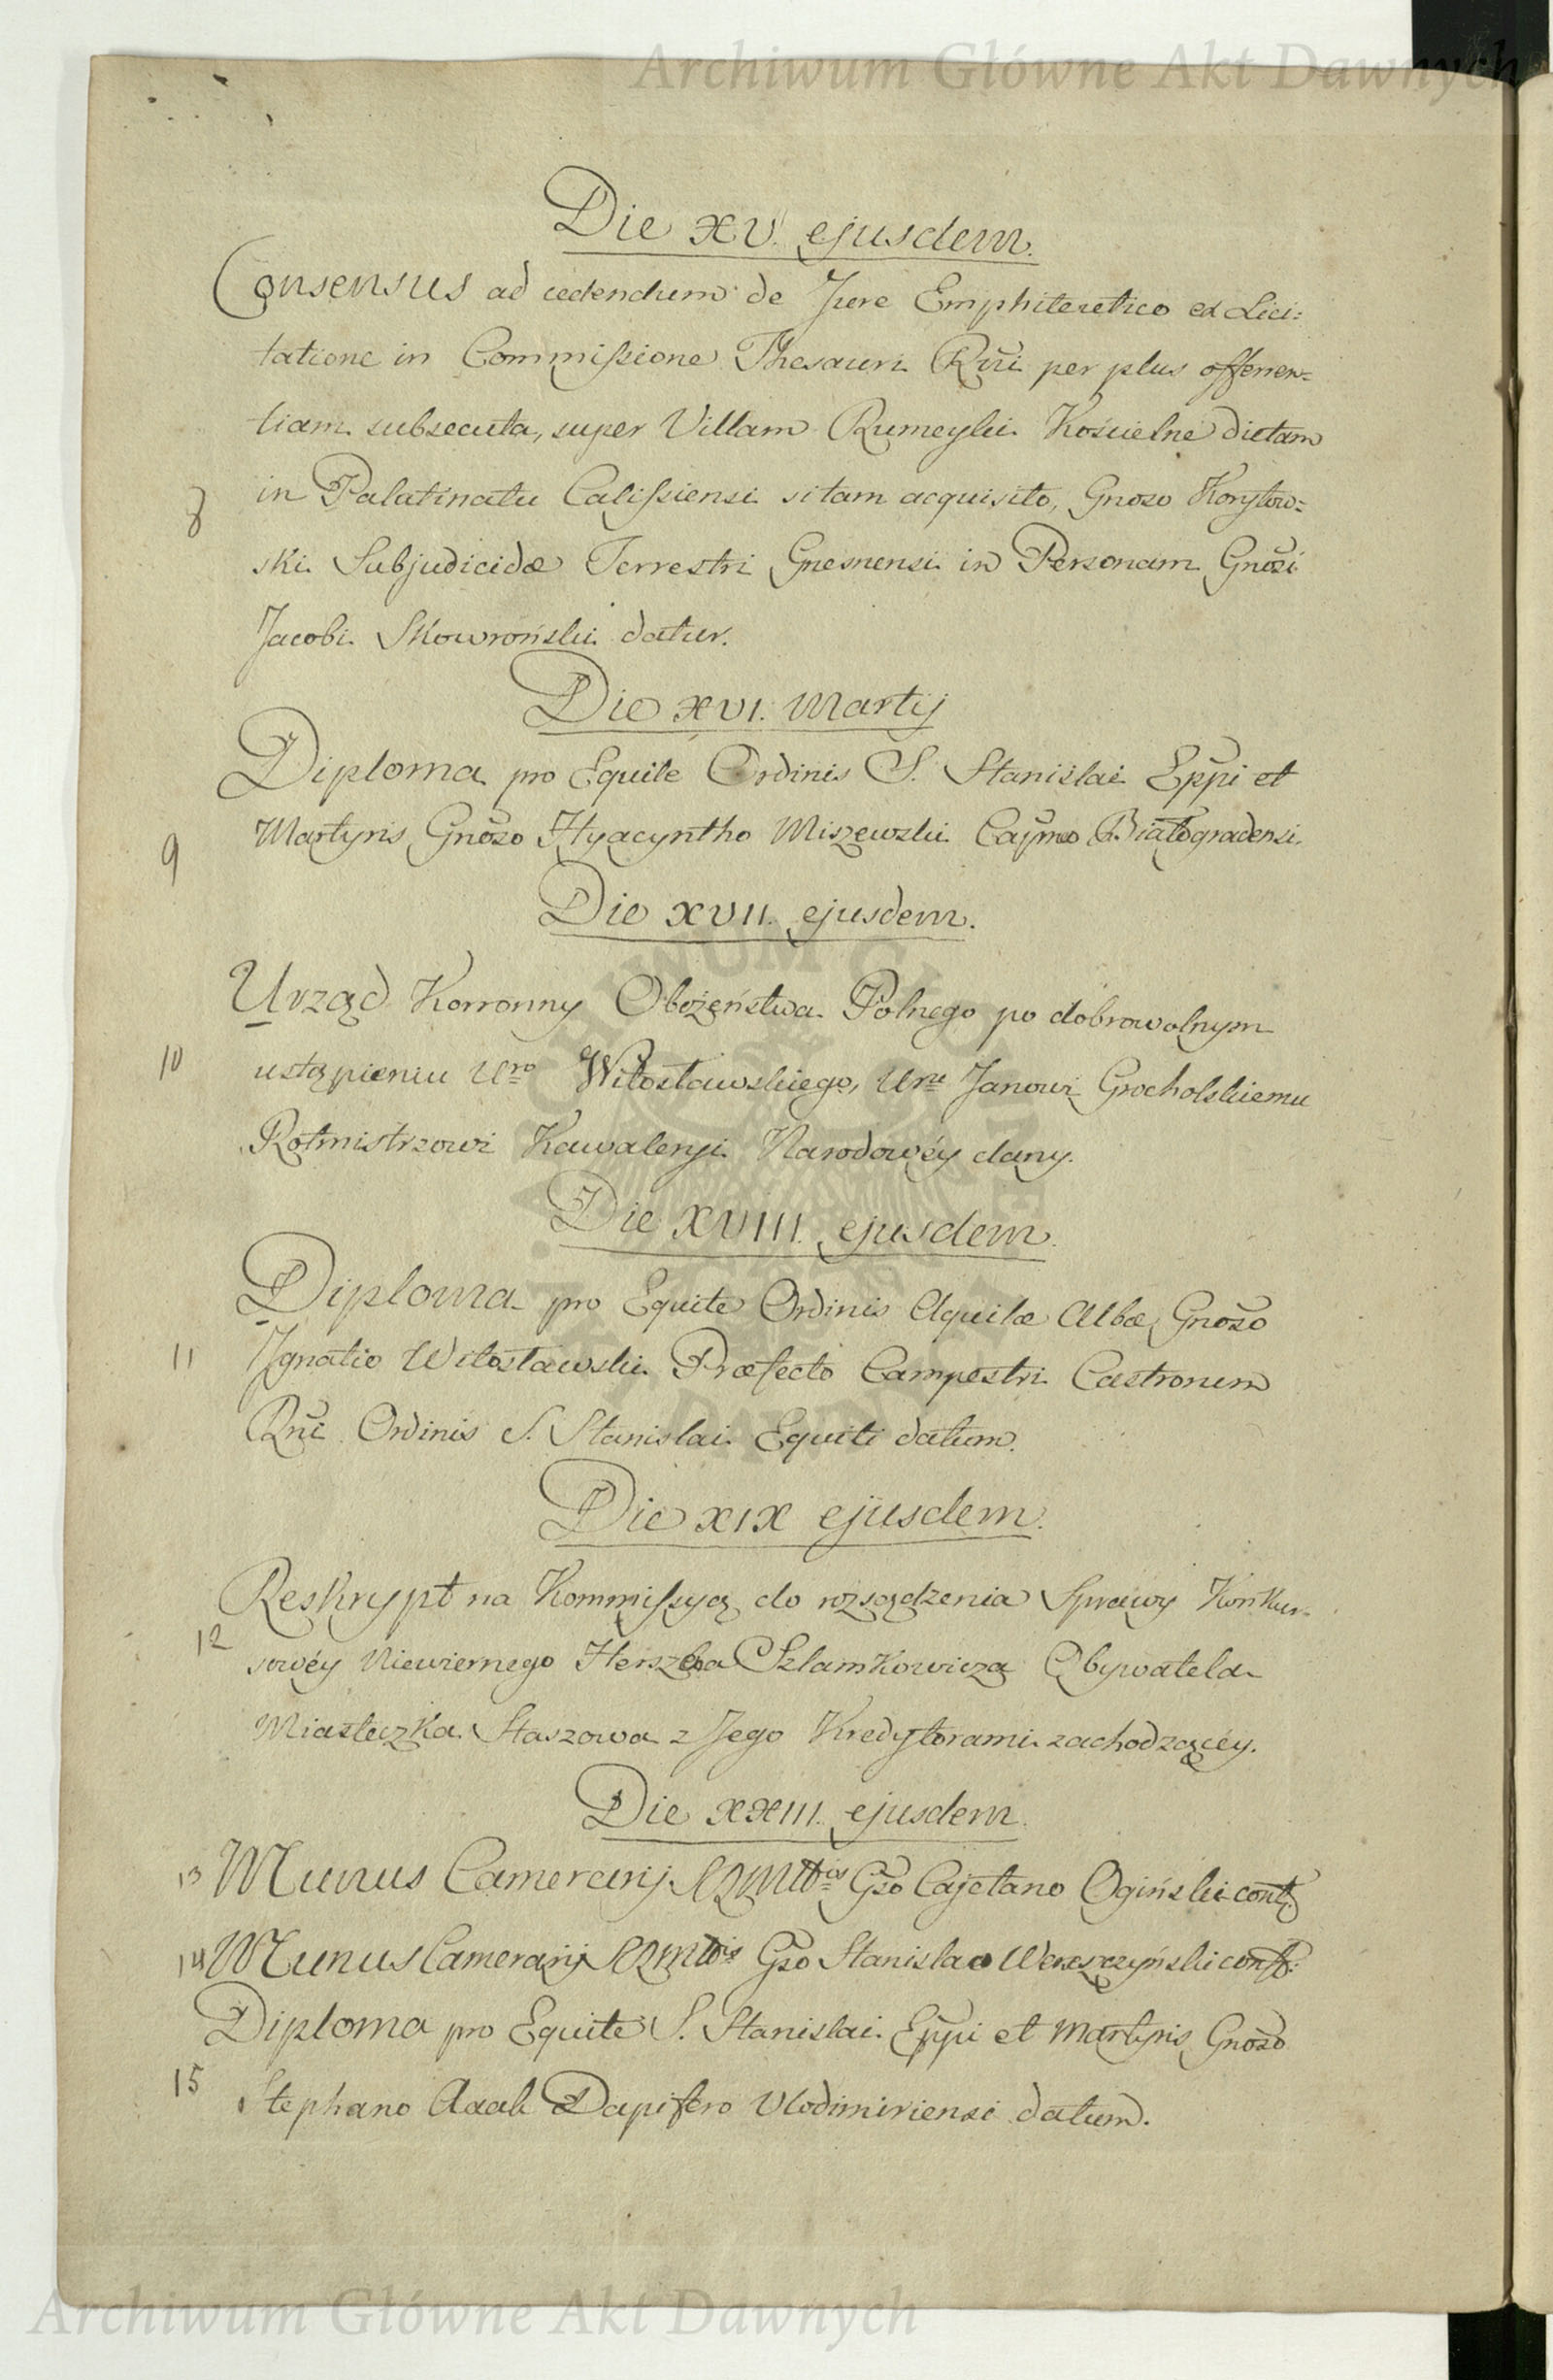 Archiwum Główne Akt Dawnych
Die XV. ejusdem.
Consensus ad cedendum de Jure Emphiteutico ex Lici:
tatione in Commissione Thesauri Rni per plus offeren=
tiam subsecuta, super Villam Rumeyki Kościelne dictam
8 in Palatinatu Calissiensi sitam acquisito, Gnoso Korytow=
ski Subjudicidæ Terrestri Gnesnensi in Personam Gnosi
Jacobi Skowroński datur.
Die XVI. Martij
Diploma pro Equite Ordinis S. Stanislai Eppi et
9 Martyris Gnoso Hyacyntho Miszewski Białogradensi.
Die XVII. ejusdem.
Urząd Korronny Obożeństwa Polnego po dobrowolnym
10 ustąpieniu Uro Witosławskiego, Uru Janowi Grocholskiemu
Rotmistrzowi Kawaleryi Narodowéy dany.
Die XVIII. ejusdem.
Diploma pro Equite Ordinis Aquilæ Albæ Gnoso
11 Ignatio Witosławski Præfecto Campestri Castrorum
Rni Ordinis S. Stanislai Equiti datum.
Die XIX ejusdem.
Reskrypt na Kommissyą do rozsądzenia Sprawy Konkur-
12 sowéy Niewiernego Herszka Szlamkowicza Obywatela
Miasteczka Staszowa z Jego Kredytorami zachodzącéy.
Die XXIII. ejusdem
13 Munus Camerarij SRMttis Gso Cajetano Ogiński conf:
14 Munus Camerarij SRMttis Gso Stanislao Wereszczyński conf:
Diploma pro Equite S. Stanislai Eppi et Martyris Gnoso
15 Stephano Axak Dapifero Vlodimiriensi datum.
Archiwum Główne Akt Dawnych